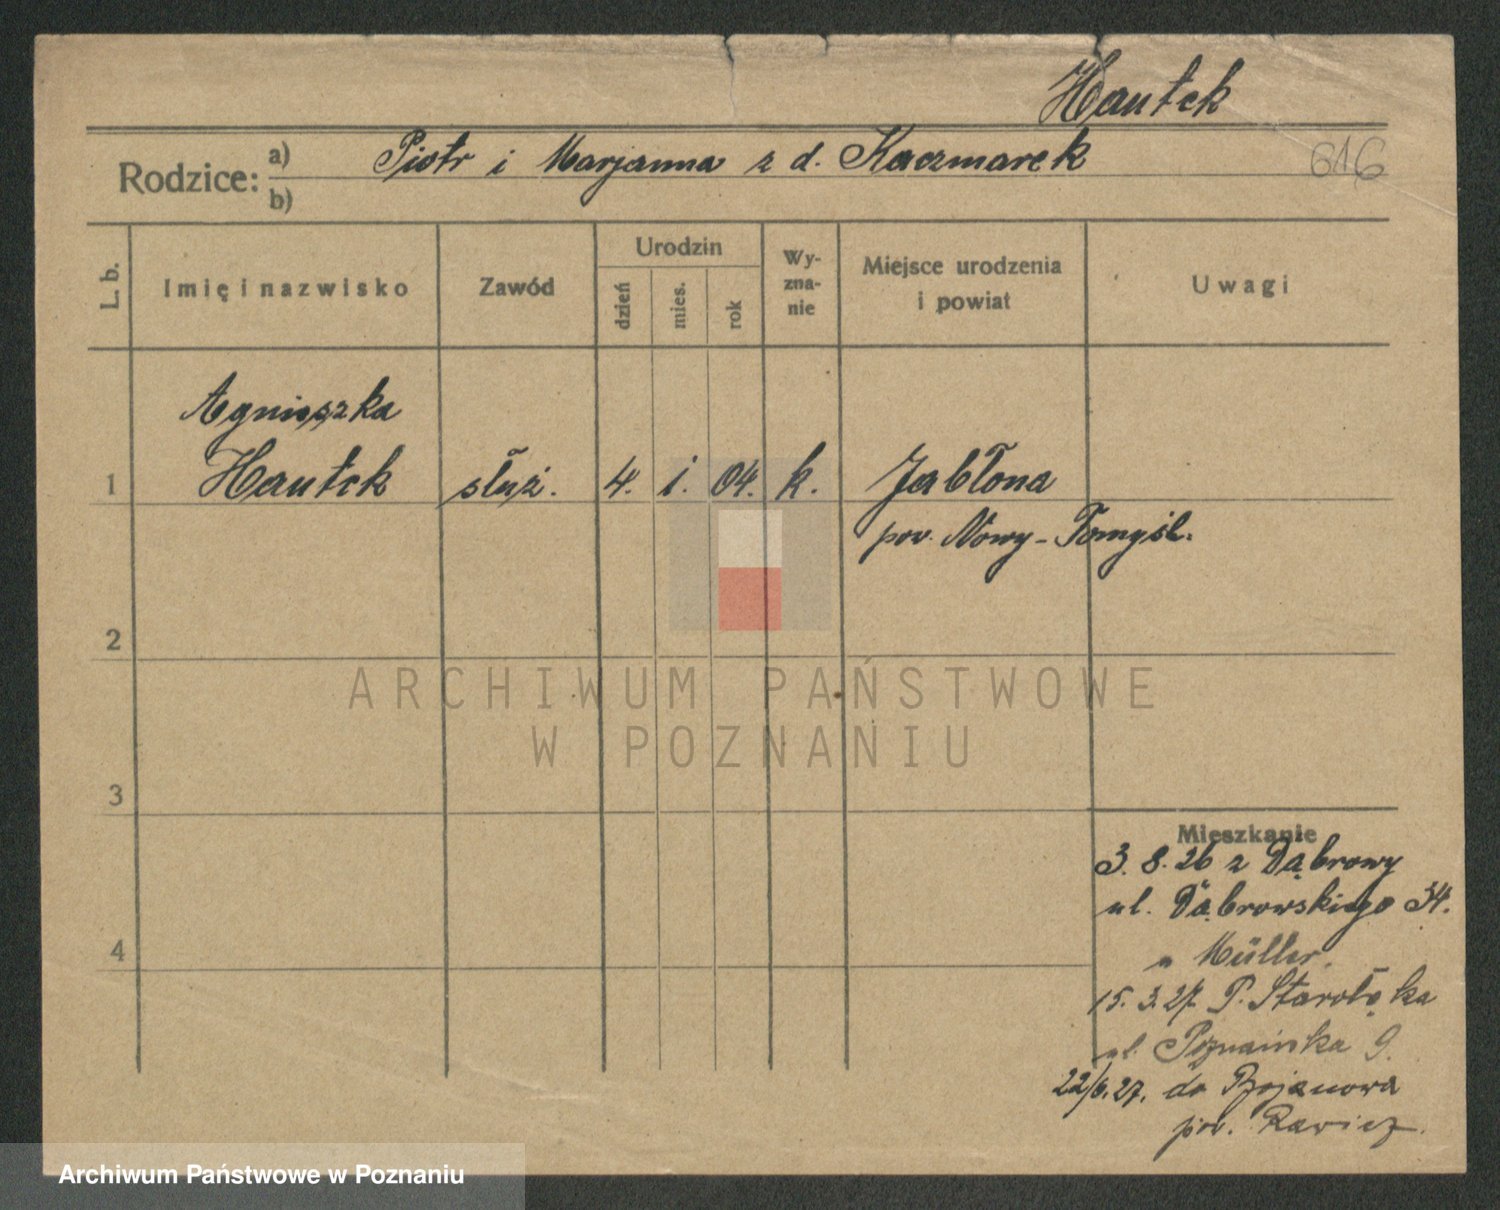 Hautek
Rodzice: a) Piotr i Marjanna z d. Kaczmarek 616
b)
L. b. Imię i nazwisko Zawód Urodzin dzień mies. rok Wy-zna-nie Miejsce urodzenia i powiat Uwagi
Agnieszka
1 Hautek służ. 4. i. 04. k. Jabłona
pow. Nowy-Tomyśl.
2
ARCHIWUM PAŃSTWOWE
W POZNANIU
3
Mieszkanie
3. 8. 26 z Dąbrowy
ul. Dąbrowskiego 34.
4
u Müller.
15. 3. 27. P. Starołęka
ul. Poznańska 9.
22/6. 27. do Bojanowa
pow. Rawicz.
Archiwum Państwowe w Poznaniu